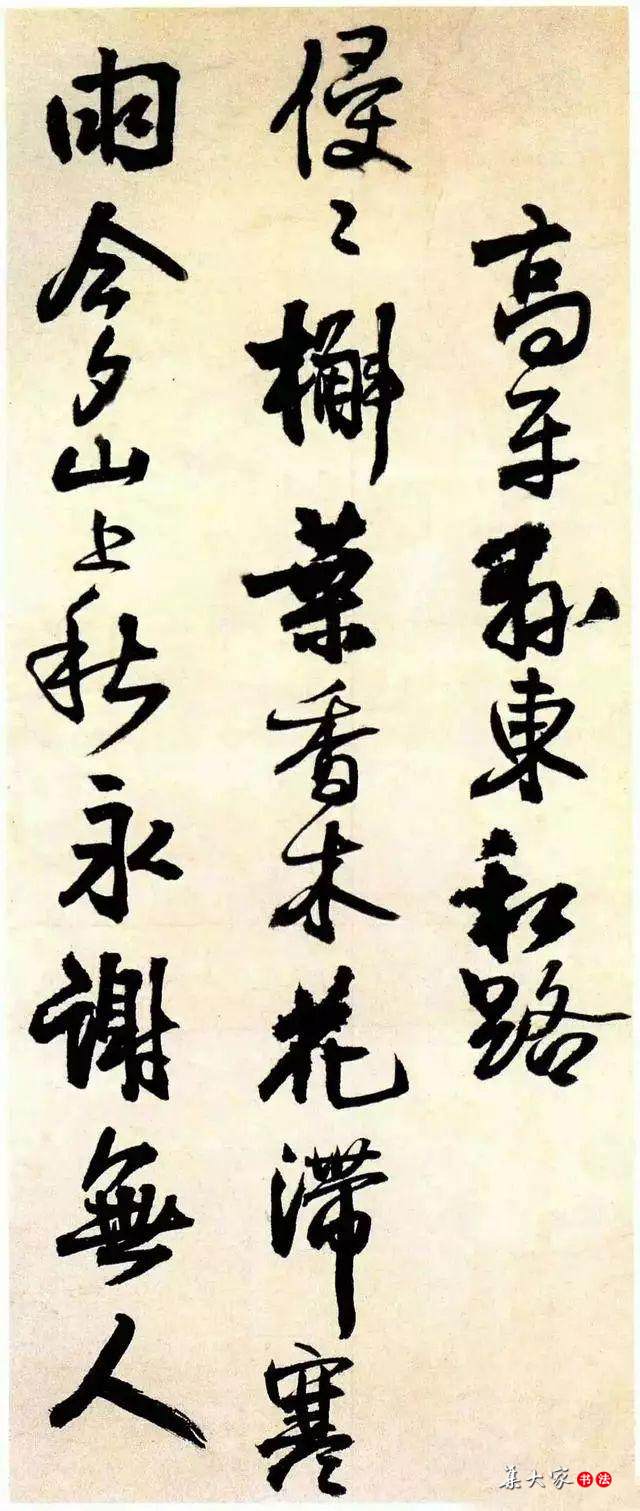 高平縣東私路
侵〻槲葉香木花滯寒
雨今夕山上秋永謝無人
集大家书法